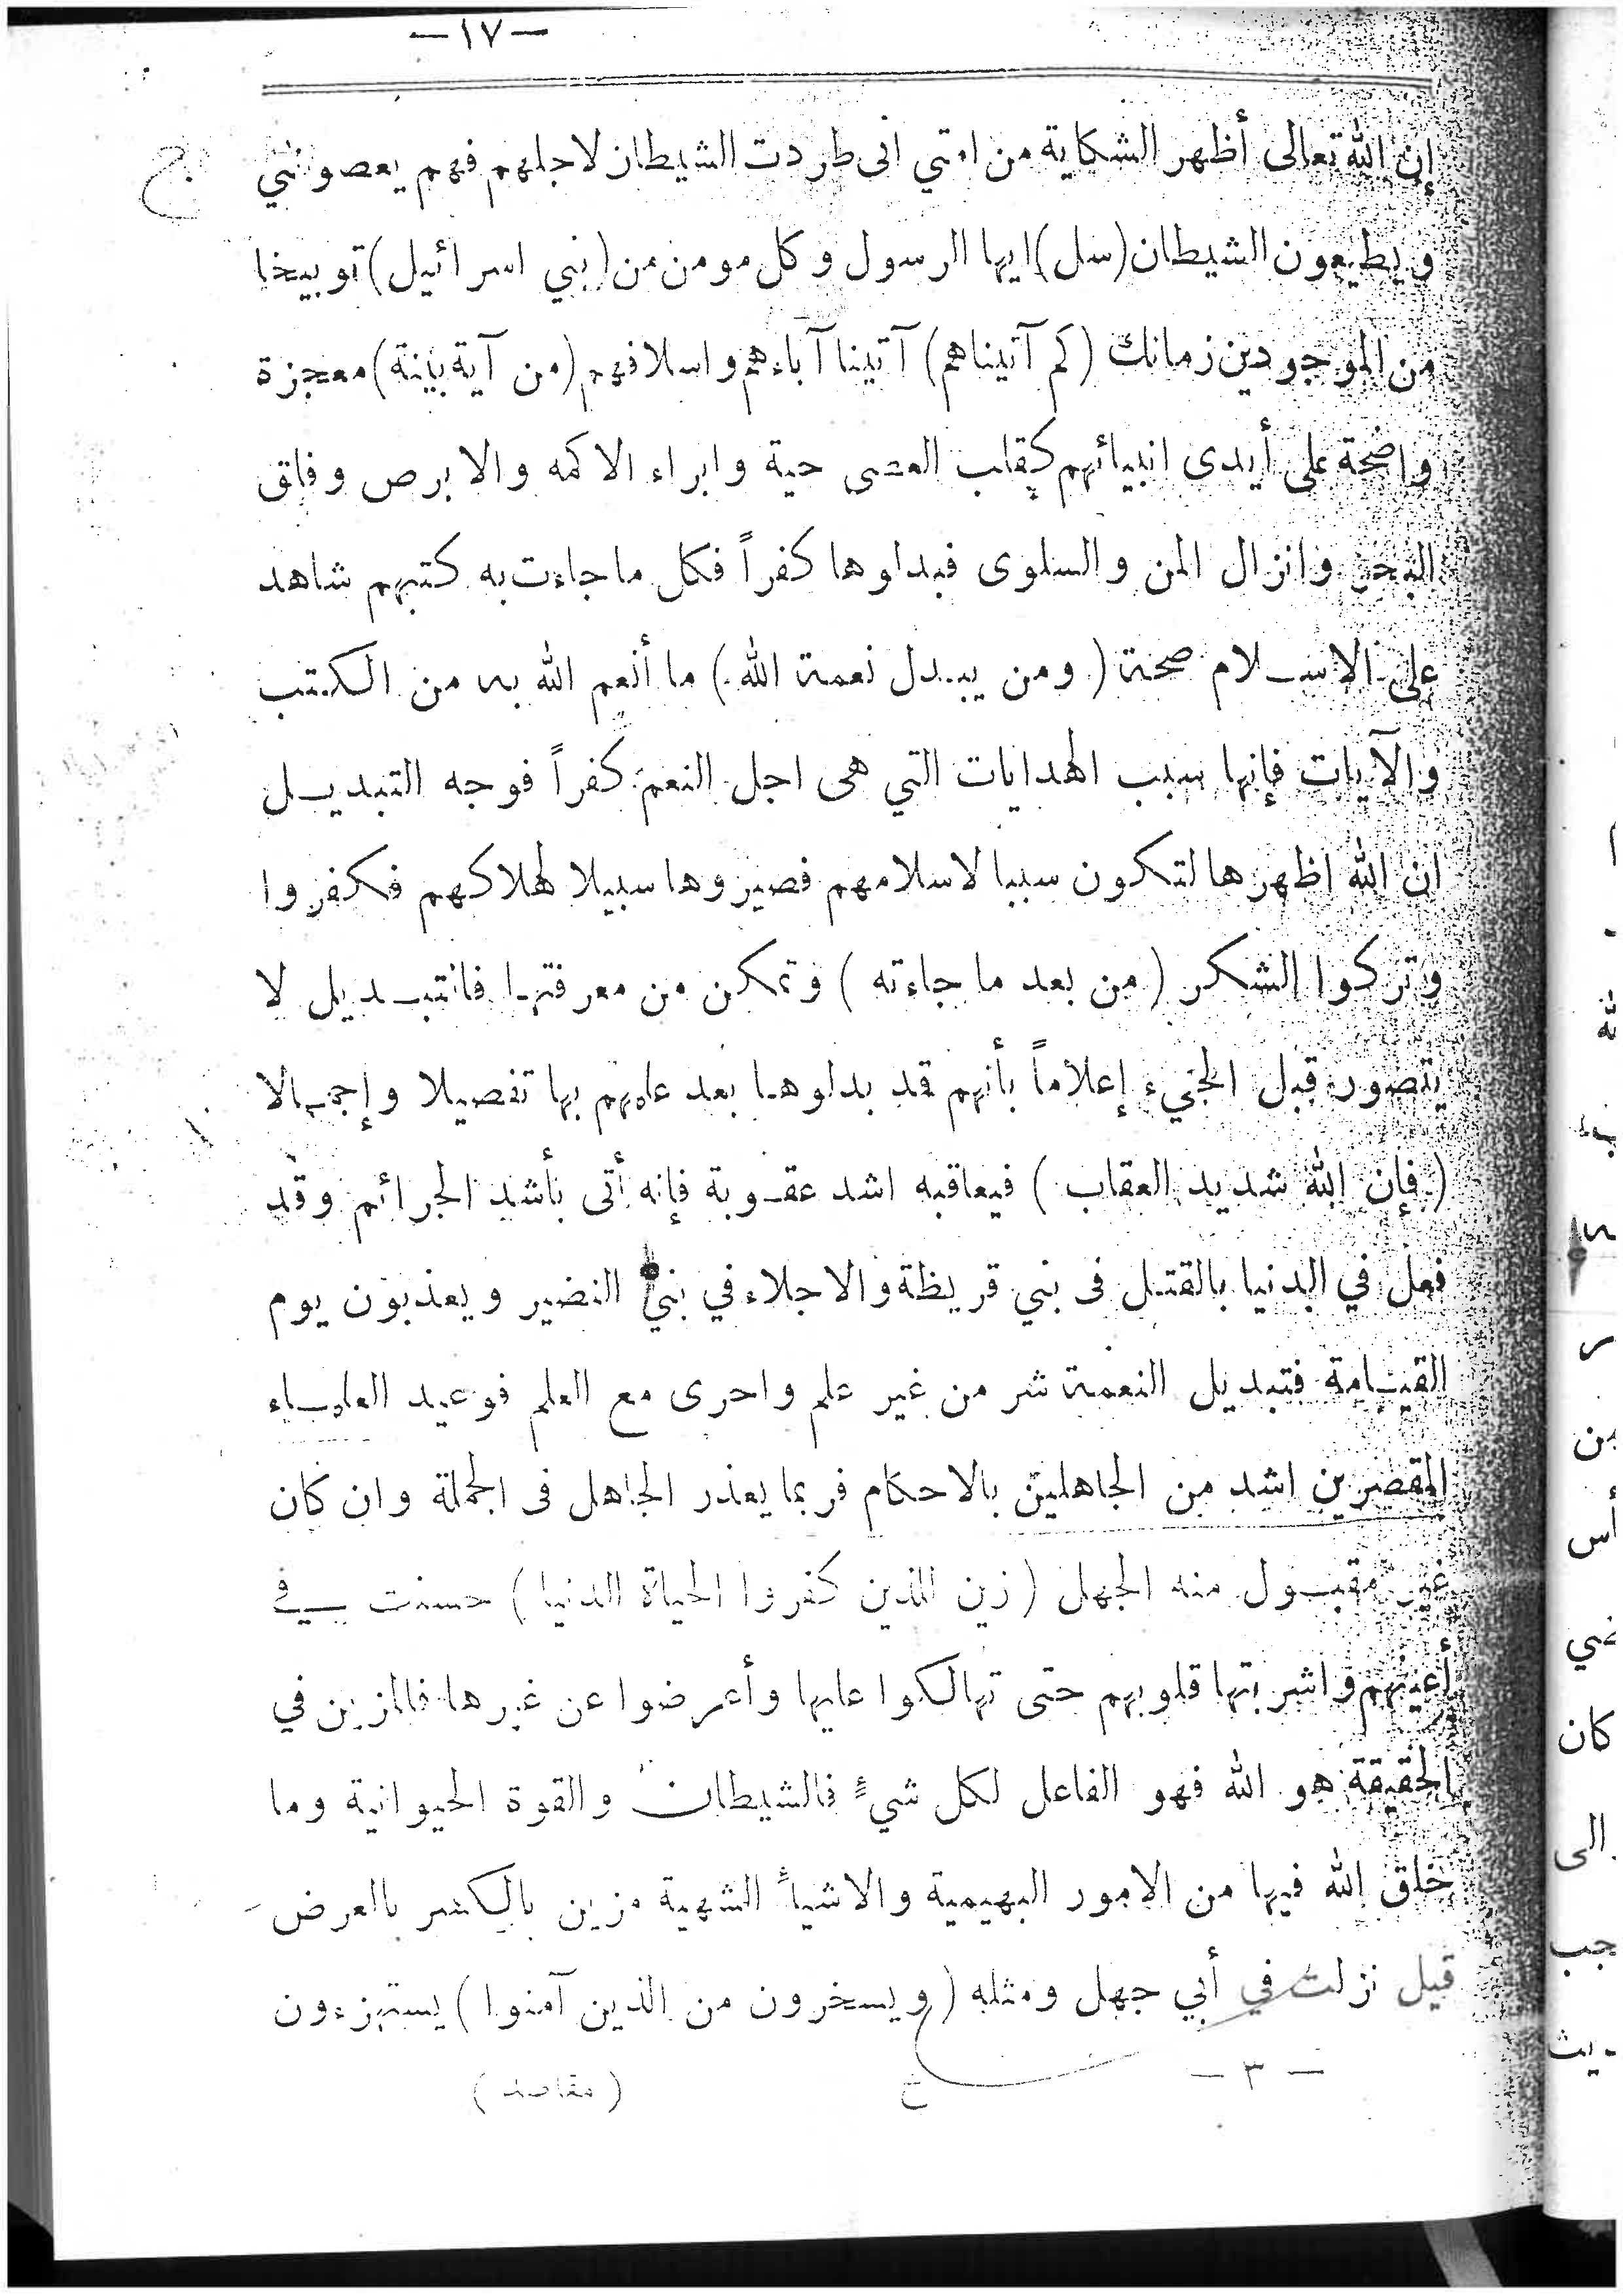 -١٧-
إن الله تعالى أظهر الشكاية من امتي انى طردت الشيطان لاجلهم فهم يعصونني
ويطيعون الشيطان (سل) ايها الرسول وكل مومن من (بني اسرائيل) توبيخا
من الموجودين زمانك (كم آتيناهم) آتينا آباءهم واسلافهم (من آية بينة) معجزة
واضحة على أيدى انبيائهم كقلب العصى حية وابراء الاكمه والابرص وفلق
البحر وانزال المن والسلوى فبدلوها كفراً فكل ما جاءت به كتبهم شاهد
على الاسلام صحة (ومن يبدل نعمة الله) ما أنعم الله به من الكتب
والآيات فإنها سبب الهدايات التي هى اجل النعم كفراً فوجه التبديل
ان الله اظهرها لتكون سببا لاسلامهم فصيروها سبيلا لهلاكهم فكفروا
وتركوا الشكر (من بعد ما جاءته) وتمكن من معرفتها فالتبديل لا
يتصور قبل المجيء إعلاماً بأنهم قد بدلوها بعد علمهم بها تفصيلا وإجمالا
(فإن الله شديد العقاب) فيعاقبه اشد عقوبة فإنه أتى بأشد الجرائم وقد
فعل في الدنيا بالقتل فى بني قريظة والاجلاء في بني النضير ويعذبون يوم
القيامة فتبديل النعمة شر من غير علم واحرى مع العلم فوعيد العلماء
المقصرين اشد من الجاهلين بالاحكام فربما يعذر الجاهل فى الجملة وان كان
غير مقبول منه الجهل (زين للذين كفروا الحياة الدنيا) حسنت في
أعينهم واشربتها قلوبهم حتى تهالكوا عليها وأعرضوا عن غيرها فالمزين في
الحقيقة هو الله فهو الفاعل لكل شيءٍ فالشيطان والقوة الحيوانية وما
خلق الله فيها من الامور البهيمية والاشياءُ الشهية مزين بالكسر بالعرض
قيل نزلت في أبي جهل ومثله (ويسخرون من الذين آمنوا) يستهزءون
- ٣ -
(مقاصد)